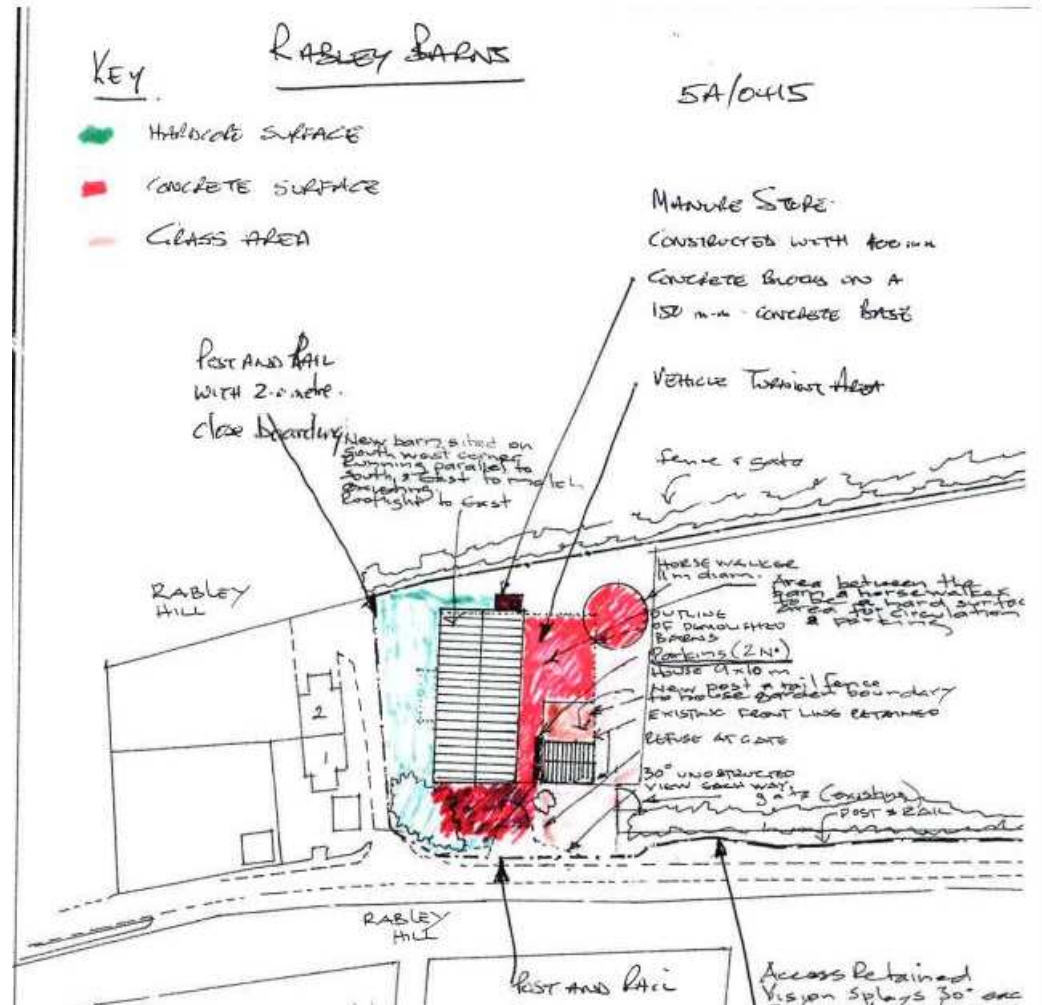 KEY
RABLEY BARNS
5A/0415
HARDCORE SURFACE
CONCRETE SURFACE
GRASS AREA
MANURE STORE
CONSTRUCTED WITH 400 mm
CONCRETE BLOCKS ON A
150 m.m. CONCRETE BASE
POST AND RAIL
WITH 2.0 metre.
close boarding
VEHICLE TURNING AREA
New barn sited on
south west corner
running parallel to
south & East to match
existing
Rooflight to East
fence & gate
RABLEY
HILL
HORSE WALKER
11m diam.
Area between the
barn & horsewalker
to be a hard surface
area for circulation
& parking
OUTLINE
OF DEMOLISHED
BARNS
Parking (2 No)
House 9x10 m
New post & rail fence
to house garden boundary
EXISTING FRONT LINE RETAINED
REFUSE AT GATE
30° UNOBSTRUCTED
VIEW EACH WAY
gate (existing)
POST & RAIL
2
1
RABLEY
HILL
POST AND RAIL
Access Retained
Vision Splays 30°